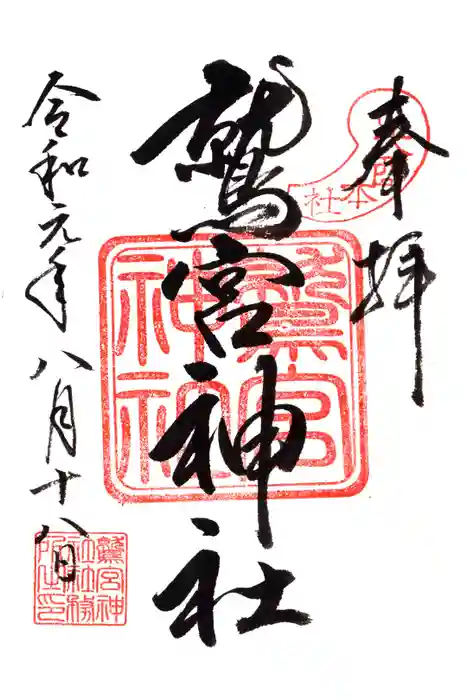 奉拝
鷲宮神社
令和元年八月十八日
鷲宮神社
鷲宮神社社務所之印
本社